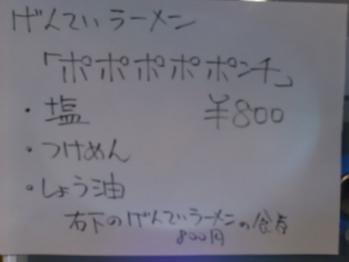 げんていラーメン
「ポポポポポンチ」
・塩 ¥800
・つけめん
・しょう油
右下のげんていラーメンの食券
800円